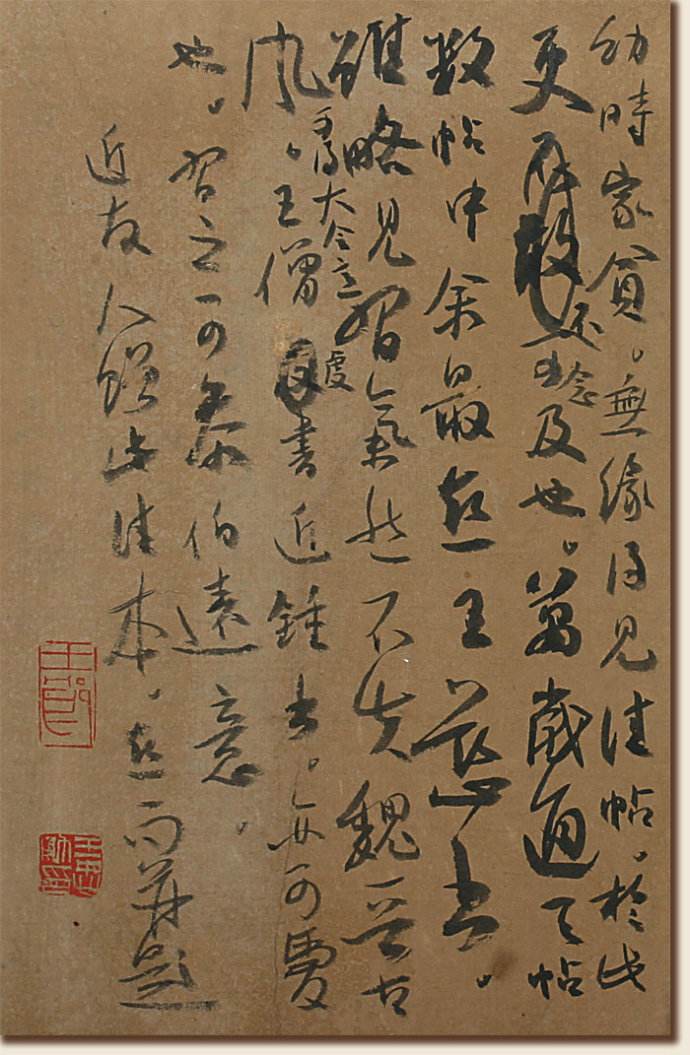 幼時家貧。無緣得見佳帖。於此
更不念及也。萬歲通天帖
數帖中余最喜王慈書。
雖略見習氣然不失魏晉古
風。王僧虔書近鍾書。可愛
大令
也。習之可參伯遠意。
近友人贈此佳本。喜而並題